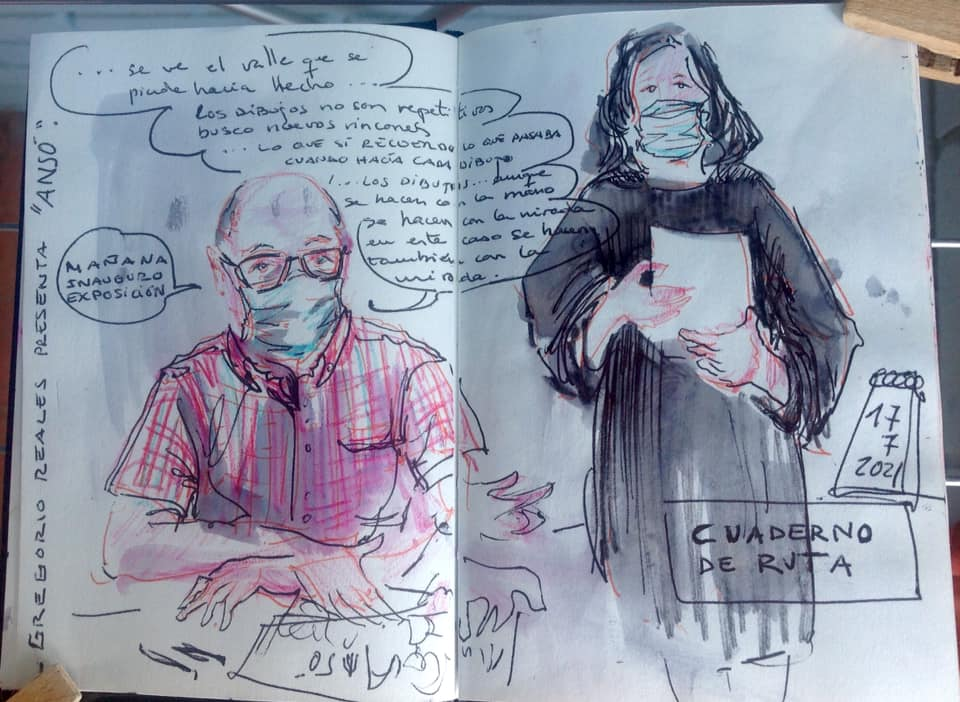 - GREGORIO REALES PRESENTA "ANSÓ".
... se ve el valle que se
pierde hacia Hecho ...
LOS DIBUJOS NO SON REPETITIVOS
BUSCO NUEVOS RINCONES
... LO QUE SÍ RECUERDO LO QUE PASABA
CUANDO HACÍA CADA DIBUJO
... LOS DIBUJOS ... aunque
se hacen con la mano
se hacen con la mirada
en este caso se hacen
también con la
mirada.
MAÑANA
INAUGURO
EXPOSICIÓN
17
7
2021
CUADERNO
DE RUTA